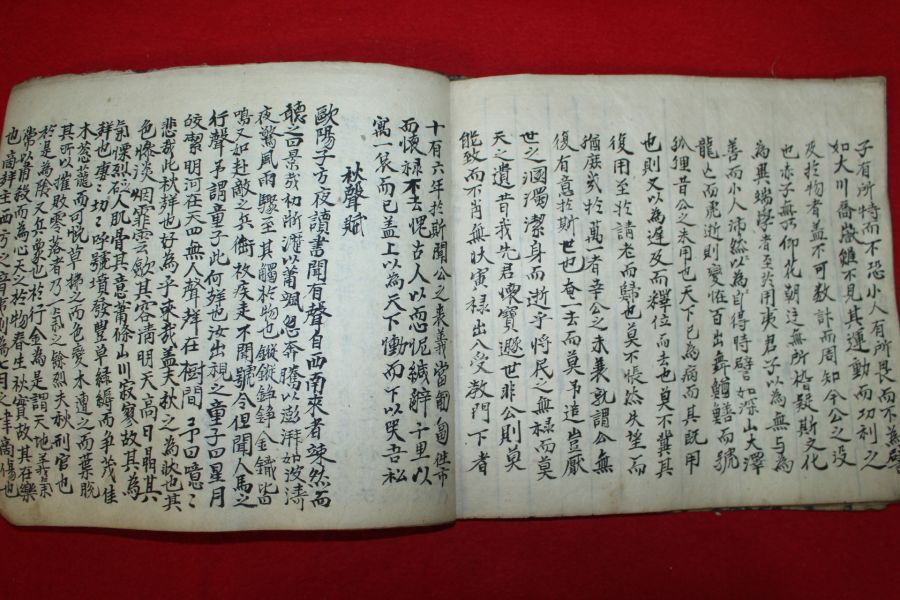 子有所恃而不恐小人有所畏而不為譬
如大川喬嶽雖不見其運動而功利之
及於物者盖不可數計而周知今公之没
也赤子無所仰芘朝廷無所稽疑斯文化
為異端學者至於用夷君子以為無与為
善而小人沛然以為自得時譬如深山大澤
龍亡而虎逝則變怪百出舞鰌鱔而號
狐狸昔公之未用也天下已為病而其既用
也則又以為遲及而釋位而去也莫不冀其
復用至於請老而歸也莫不悵然失望而
猶庶幾於萬者幸公之未衰孰謂公無
復有意於斯世也奄一去而莫予追豈厭
世之溷濁潔身而逝乎將民之無禄而莫
天之遺昔我先君懷寶遯世非公則莫
能致而不肖無狀夤禄出入受教門下者
十有六年於斯聞公之喪義當匍匐徃市
而懷禄不去愧古人以忸怩緘辭千里以
寓一哀而已盖上以為天下慟而下以哭吾私
秋聲賦
歐陽子方夜讀書聞有聲自西南來者竦然而
聽之曰異哉初淅瀝以蕭颯忽奔騰以澎湃如波濤
夜驚風雨驟至其觸於物也鏦鏦錚錚金鐵皆
鳴又如赴敵之兵銜枚疾走不聞號令但聞人馬之
行聲予謂童子此何聲也汝出視之童子曰星月
皎潔明河在天四無人聲聲在樹間予曰噫ミ
悲哉此秋聲也好為乎來哉盖夫秋之為狀也其
色慘淡烟霏雲歛其容清明天高日晶其
氣慄烈砭人肌骨其意蕭條山川寂寥故其為
聲也凄ミ切ミ呼號墳發豊草緑縟而爭茂佳
木葱蘢而可悦草拂之而色變木遭之而葉脫
其所以摧敗零落者乃一氣之餘烈夫秋刑官也
於是為陰又兵象也於行金為是謂天地之義氣
常以肅殺而為心天之於物春生秋實故其在樂
也商聲主西方之音夷則為七月之律商傷也